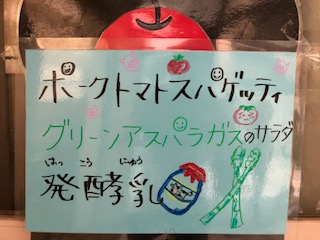 ポークトマトスパゲッティ
グリーンアスパラガスのサラダ
はっ こう にゅう
発酵乳